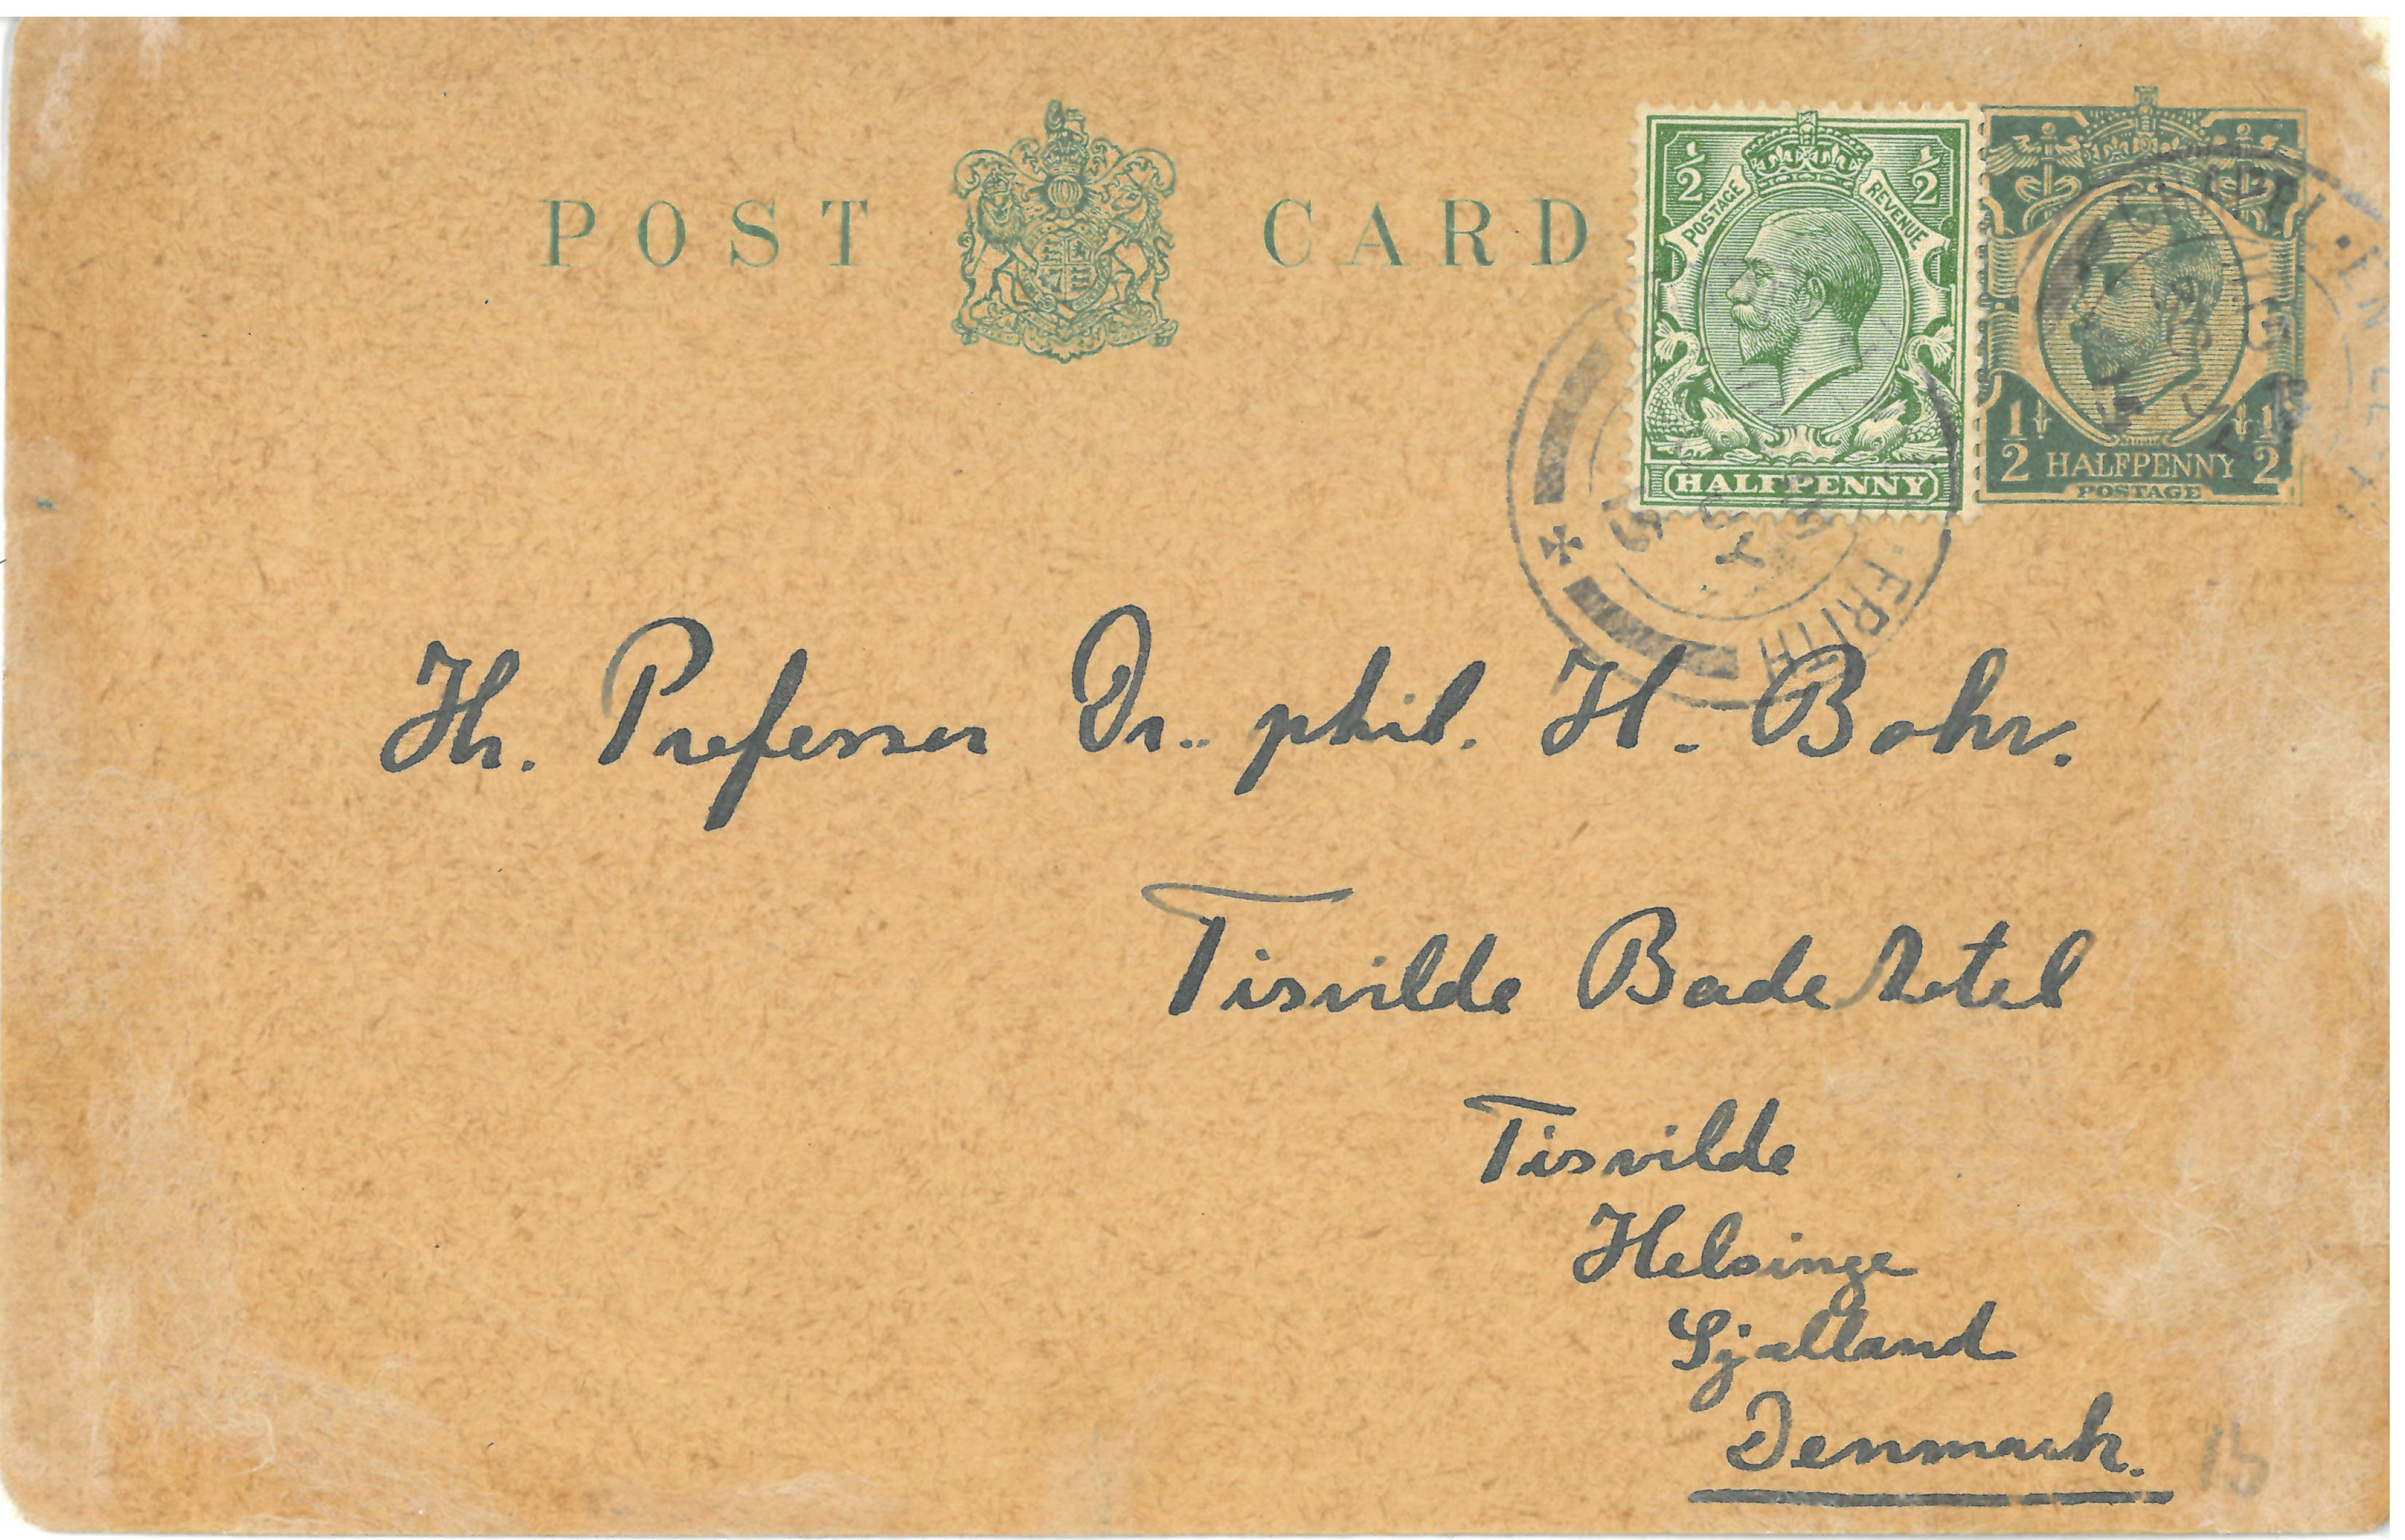 POST CARD
½ ½
POSTAGE REVENUE
HALFPENNY
½ HALFPENNY ½
POSTAGE
Hr. Professor Dr. phil. H. Bohr.
Tisvilde Badehotel
Tisvilde
Helsinge
Sjælland
Denmark.
15